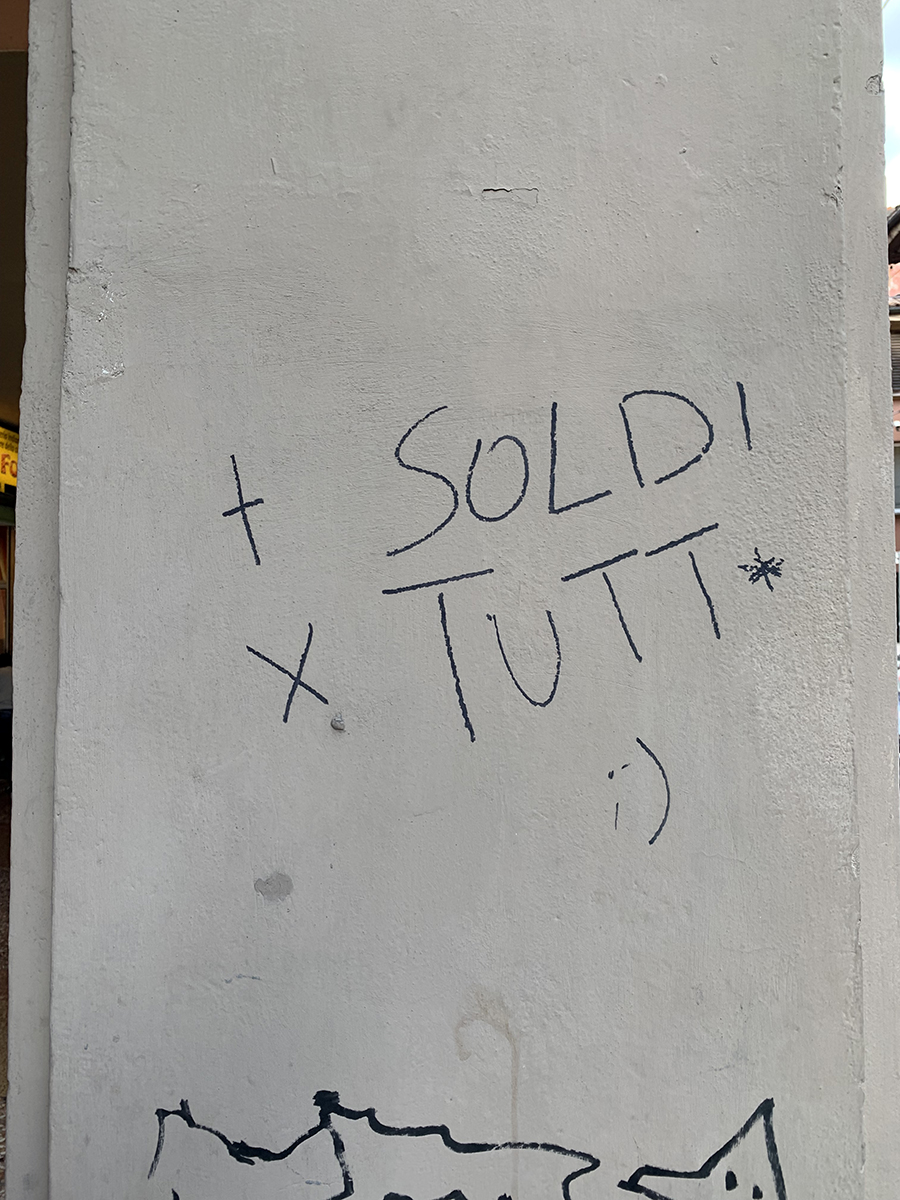 + SOLDI
x TUTT*
;)
Fo